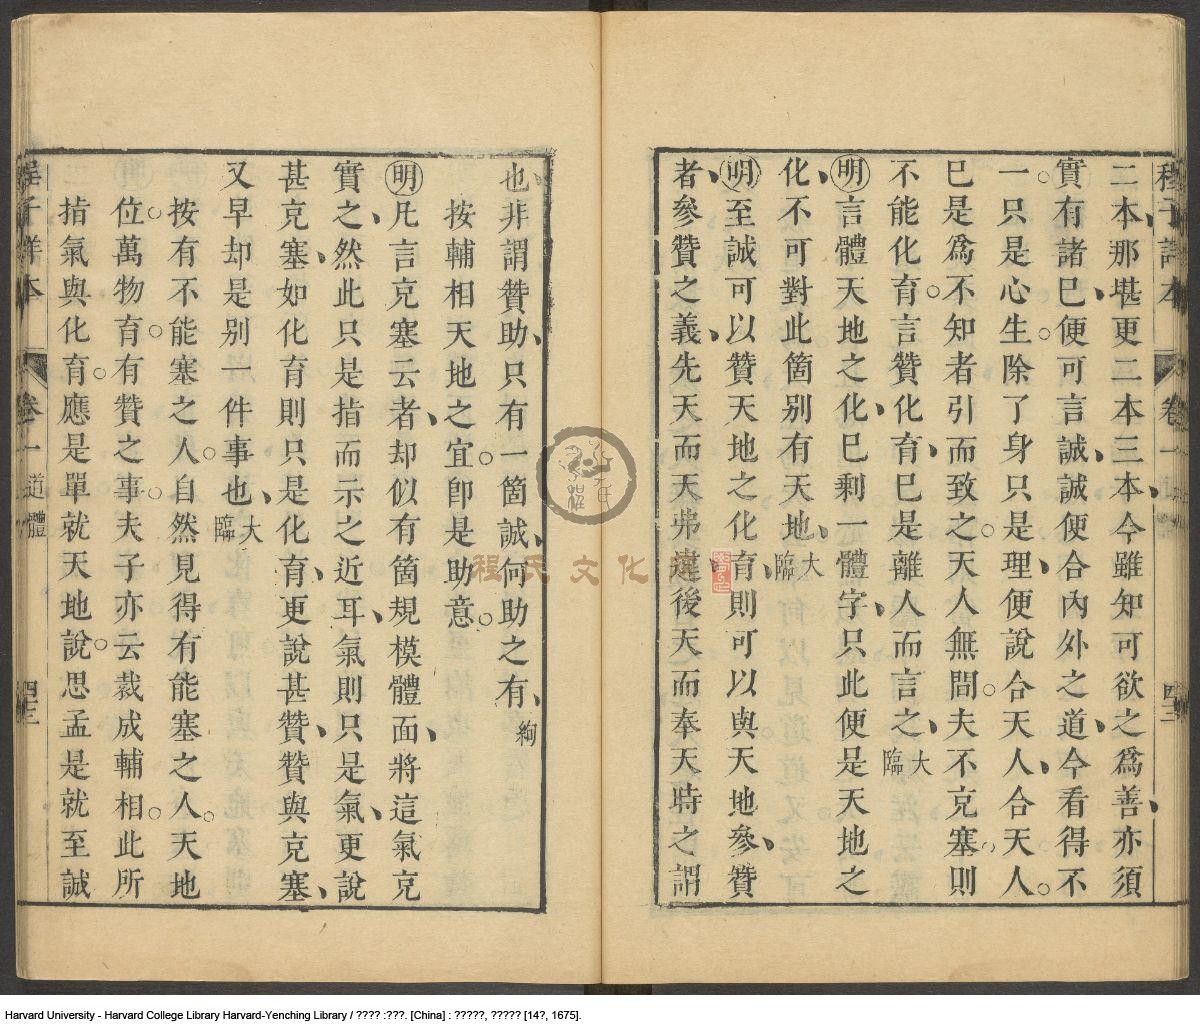 二本那堪更二本三本今雖知可欲之爲善亦須
實有諸已便可言誠誠便合內外之道今看得不
一只是心生除了身只是理便說合天人合天人
已是爲不知者引而致之天人無間夫不充塞則
不能化育言贊化育已是離人而言之大臨
明言體天地之化已剩一體字只此便是天地之
化不可對此箇別有天地大臨
明至誠可以贊天地之化育則可以與天地參贊
者參贊之義先天而天弗違後天而奉天時之謂
也非謂贊助只有一箇誠何助之有絢
按輔相天地之宜卽是助意
明凡言充塞云者却似有箇規模體面將這氣充
實之然此只是指而示之近耳氣則只是氣更說
甚充塞如化育則只是化育更說甚贊贊與充塞
又早却是別一件事也大臨
按有不能塞之人自然見得有能塞之人天地
位萬物育有贊之事夫子亦云裁成輔相此所
指氣與化育應是單就天地說思孟是就至誠
卷一 道體
程氏文化
Harvard University - Harvard College Library Harvard-Yenching Library / ???? :???. [China] : ?????, ????? [14?, 1675].